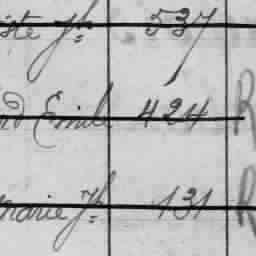 iste Jh 537
nd Emile 424 R
marie Jh 131 R